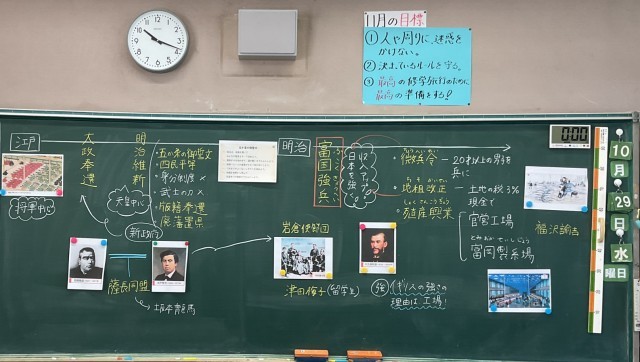 11月の目標
①人や周りに、迷惑を
かけない。
②決まっているルールを守る。
③最高の修学旅行のために、
最高の準備をする!
江戸
将軍中心
大政奉還
明治維新
・五か条の御誓文
・四民平等
・身分制度×
・武士の力×
・版籍奉還
・廃藩置県
天皇中心
新政府
薩長同盟
坂本龍馬
明治
富国強兵
ふこくきょうへい
日本を強く
岩倉使節団
津田梅子(留学生)
強
イギリスの強さの
理由は工場!
・徴兵令
ちょうへいれい
20才以上の男子を
兵に
・地租改正
ちそかいせい
土地の税3%
現金で
・殖産興業
しょくさんこうぎょう
官営工場
とみおかせいしじょう
富岡製糸場
福沢諭吉
10
月
29
日
水
曜日